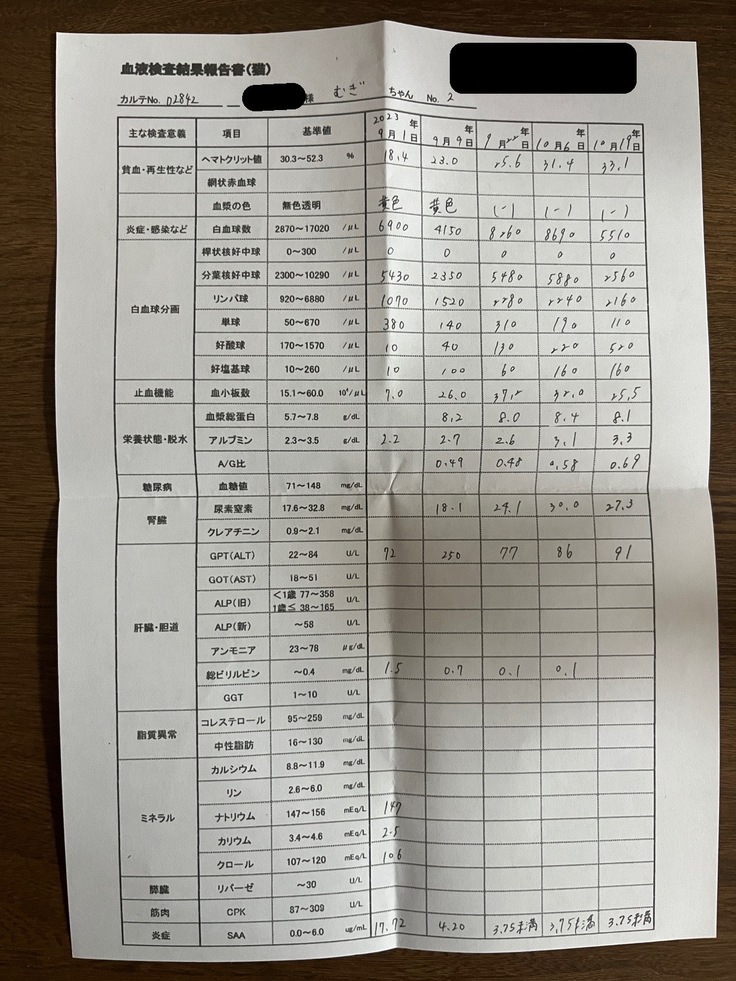 血液検査結果報告書(猫)
カルテNo. 02842 様 むぎ ちゃん No. 2
主な検査意義 項目 基準値 2023年9月1日 年9月9日 年9月22日 年10月6日 年10月19日
貧血・再生性など ヘマトクリット値 30.3～52.3 % 18.4 23.0 25.6 31.4 33.1
網状赤血球
血漿の色 無色透明 黄色 黄色 (-) (-) (-)
炎症・感染など 白血球数 2870～17020 /μL 6900 4150 8260 8690 5510
白血球分画 桿状核好中球 0～300 /μL 0 0 0 0 0
分葉核好中球 2300～10290 /μL 5430 2350 5480 5880 2560
リンパ球 920～6880 /μL 1070 1520 2280 2240 2160
単球 50～670 /μL 380 140 310 190 110
好酸球 170～1570 /μL 10 40 130 220 520
好塩基球 10～260 /μL 10 100 60 160 160
止血機能 血小板数 15.1～60.0 10⁴/μL 7.0 26.0 37.2 32.0 25.5
栄養状態・脱水 血漿総蛋白 5.7～7.8 g/dL 8.2 8.0 8.4 8.1
アルブミン 2.3～3.5 g/dL 2.2 2.7 2.6 3.1 3.3
A/G比 0.49 0.48 0.58 0.69
糖尿病 血糖値 71～148 mg/dL
腎臓 尿素窒素 17.6～32.8 mg/dL 18.1 24.1 30.0 27.3
クレアチニン 0.9～2.1 mg/dL
肝臓・胆道 GPT(ALT) 22～84 U/L 72 250 77 86 91
GOT(AST) 18～51 U/L
ALP(旧) <1歳 77～358 1歳≦ 38～165 U/L
ALP(新) ～58 U/L
アンモニア 23～78 μg/dL
総ビリルビン ～0.4 mg/dL 1.5 0.7 0.1 0.1
GGT 1～10 U/L
脂質異常 コレステロール 95～259 mg/dL
中性脂肪 16～130 mg/dL
ミネラル カルシウム 8.8～11.9 mg/dL
リン 2.6～6.0 mg/dL
ナトリウム 147～156 mEq/L 147
カリウム 3.4～4.6 mEq/L 2.5
クロール 107～120 mEq/L 106
膵臓 リパーゼ ～30 U/L
筋肉 CPK 87～309 U/L
炎症 SAA 0.0～6.0 ug/mL 17.72 4.20 3.75未満 3.75未満 3.75未満